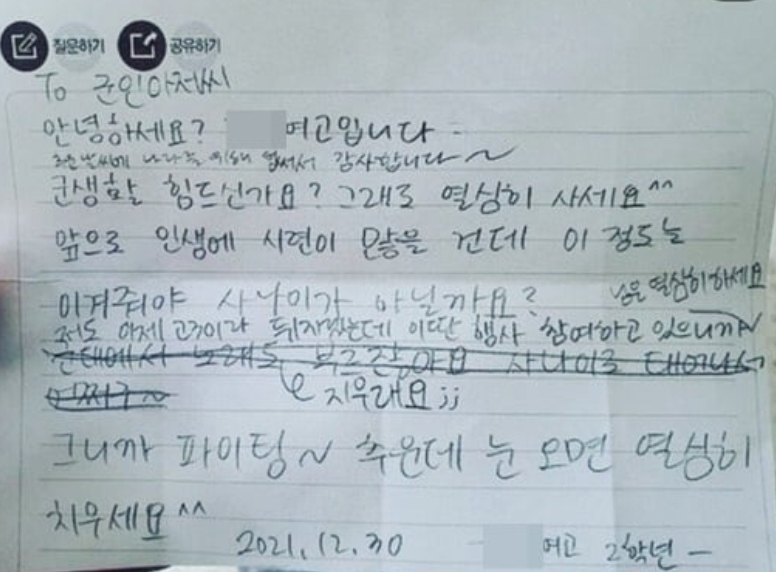 질문하기 공유하기
To 군인아저씨
안녕하세요? 여고입니다
추운 날씨에 나라를 위해서 힘써서 감사합니다~
군생활 힘드신가요? 그래도 열심히 사세요^^
앞으로 인생에 시련이 많을 건데 이 정도는
이겨줘야 사나이가 아닐까요?
저도 이제 고3이라 뒤지겠는데 이딴 행사 참여하고 있으니까~
님은 열심히 하세요
군대에서 노래도 부르잖아요 사나이로 태어나서
어쩌구~
지우래요;;
그니까 파이팅~ 추운데 눈 오면 열심히
치우세요^^
2021.12.30 여고 2학년 -